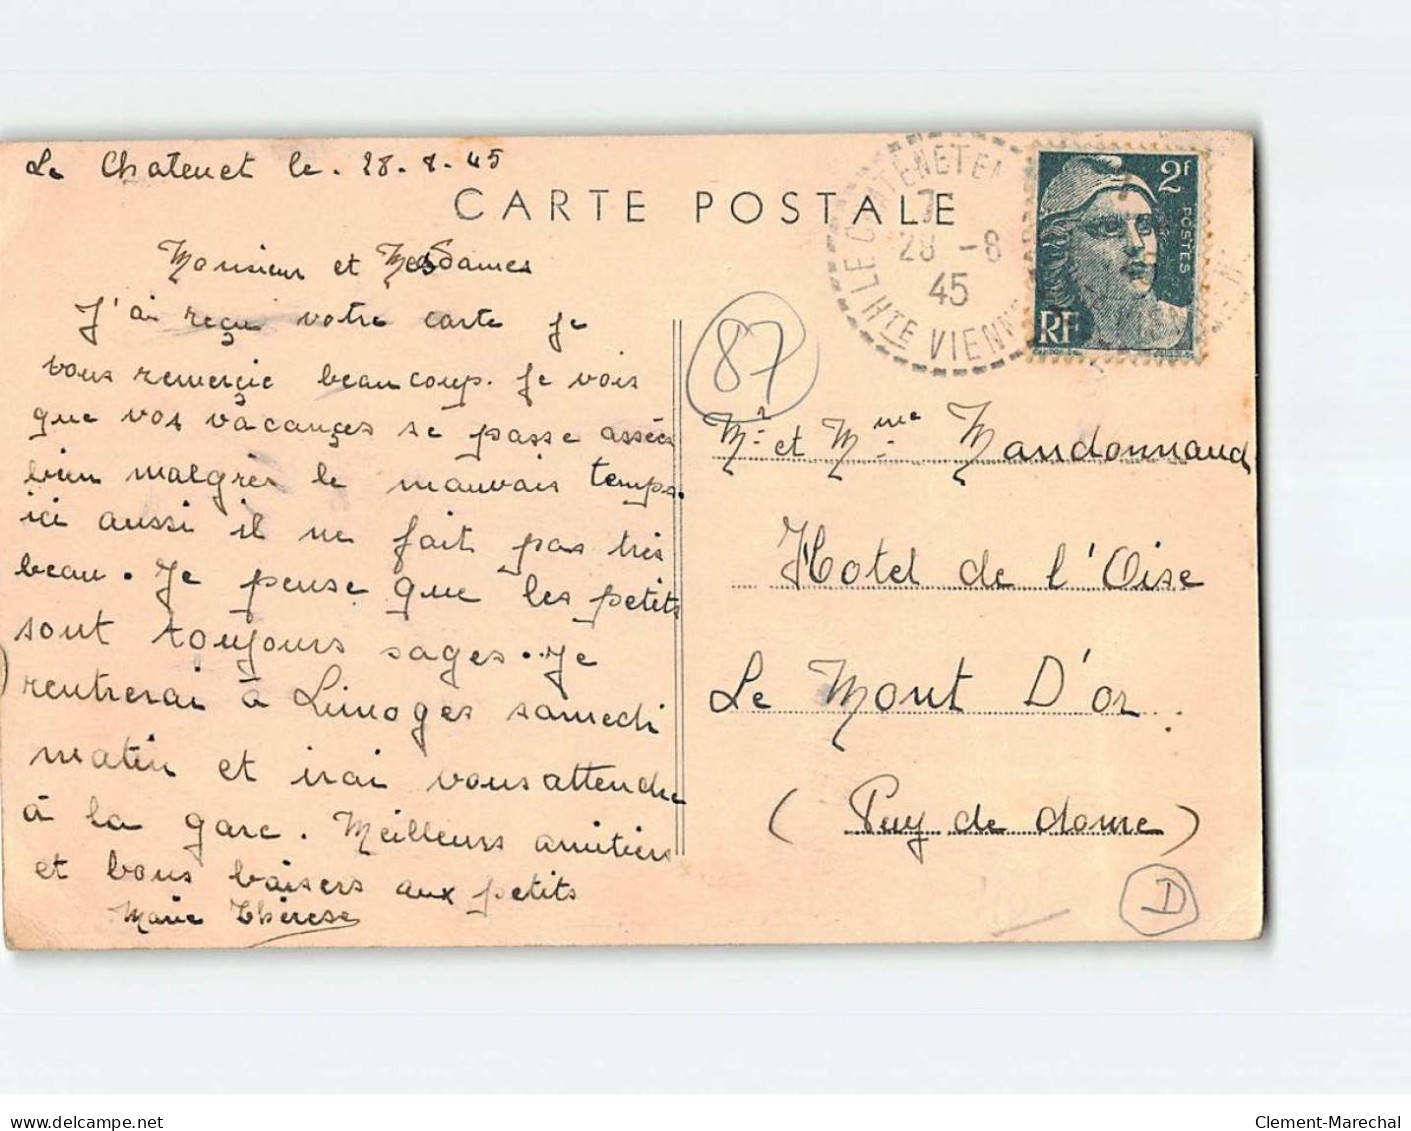 Le Chatenet le. 28-8-45
CARTE POSTALE
LE CHATENET EN
7
28 -8
45
HTE VIENNE
2F
POSTES
RF
Monsieur et MesDames
J'ai reçu votre carte je
vous remerçie beaucoup. Je vois
que vos vacançes se passe assées
bien malgrés le mauvais temps.
ici aussi il ne fait pas très
beau. Je pense que les petits
sont toujours sages. Je
rentrerai à Limoges samedi
matin et irai vous attendre
à la gare. Meilleurs amitiers
et bons baisers aux petits
Marie Thérèse
87
Mr et Mme Mandonnaud
Hotel de l'Oise
Le Mont D'or.
(Puy de dome)
D
delcampe.net
Clement-Marechal